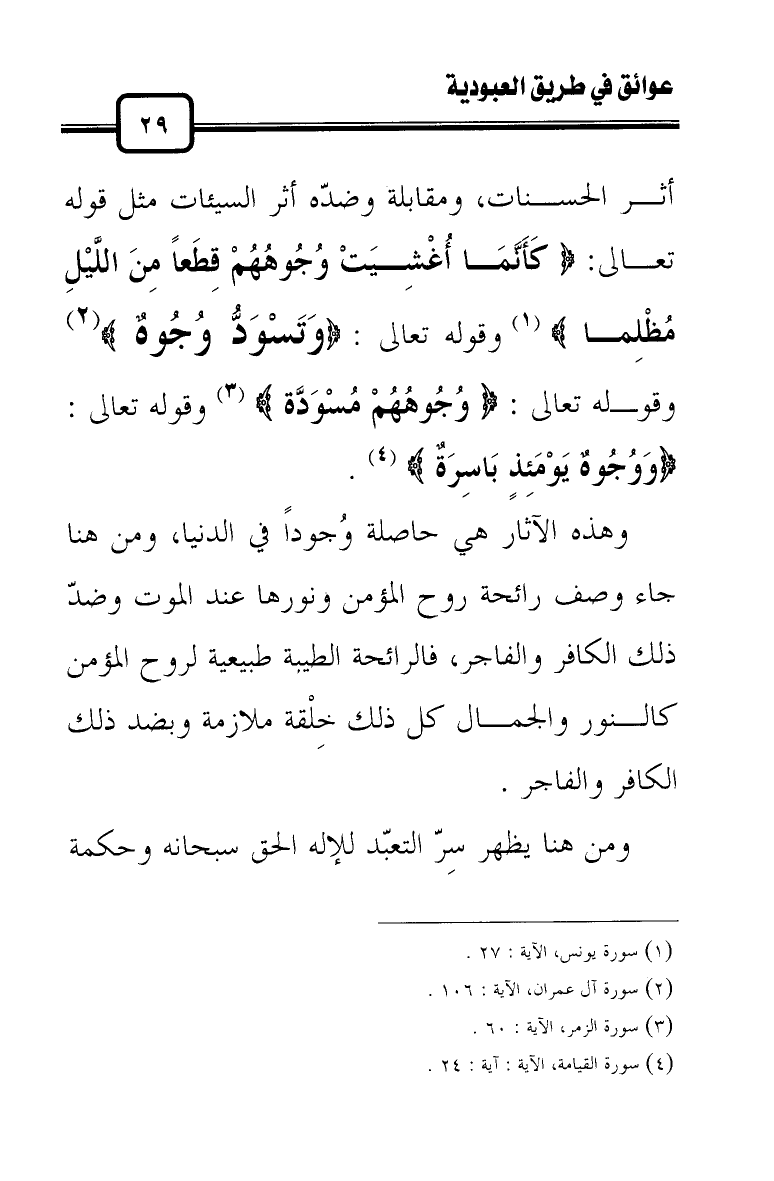 عوائق في طريق العبودية
٢٩
أثـــر الحســـنات، ومقابلة وضدّه أثر السيئات مثل قوله
تعـــالى: ﴿ كَأَنَّمَـــا أُغْشِـــيَتْ وُجُوهُهُمْ قِطَعاً مِنَ اللَّيْلِ
مُظْلِمـــا ﴾ (١) وقوله تعالى : ﴿وَتَسْوَدُّ وُجُوهٌ ﴾(٢)
وقوـــله تعالى : ﴿ وُجُوهُهُمْ مُسْوَدَّة ﴾ (٣) وقوله تعالى :
﴿وَوُجُوهٌ يَوْمَئِذٍ بَاسِرَةٌ ﴾ (٤) .
وهذه الآثار هي حاصلة وُجوداً في الدنيا، ومن هنا
جاء وصف رائحة روح المؤمن ونورها عند الموت وضدّ
ذلك الكافر والفاجر، فالرائحة الطيبة طبيعية لروح المؤمن
كالـــنور والجمـــال كل ذلك خِلْقة ملازمة وبضد ذلك
الكافر والفاجر .
ومن هنا يظهر سِرّ التعبّد للإله الحق سبحانه وحكمة
(١) سورة يونس، الآية : ٢٧ .
(٢) سورة آل عمران، الآية : ١٠٦ .
(٣) سورة الزمر، الآية : ٦٠ .
(٤) سورة القيامة، الآية : آية : ٢٤ .